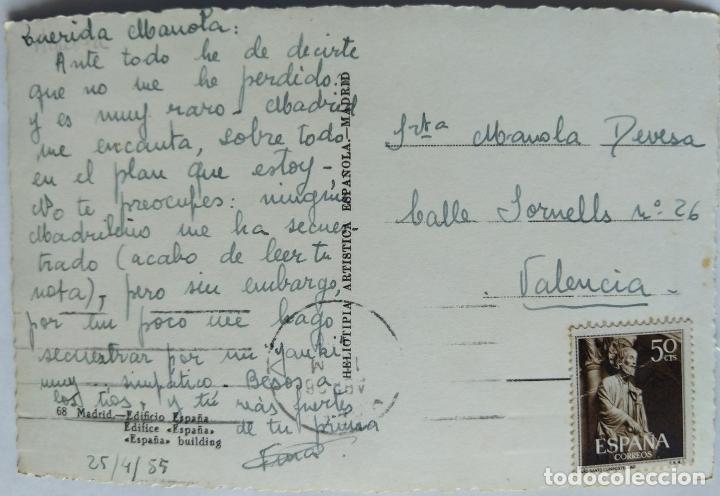 Querida Manola:
Ante todo he de decirte
que no me he perdido.
y es muy raro - Madrid
me encanta, sobre todo
en el plan que estoy -
No te preocupes: ningún
Madrileño me ha secues-
trado (acabo de leer tu
nota), pero sin embargo,
por un poco me hago
secuestrar por un yanki
muy simpático. Besos a
los tíos, y tú más fuertes
de tu prima
68 Madrid.—Edificio España
Edifice «España»
«España» building
25/4/55
HELIOTIPIA ARTISTICA ESPAÑOLA.—MADRID
Srta Manola Devesa
Calle Sornells nº 26
Valencia
50
CTS
ESPAÑA
CORREOS
todocoleccion.net